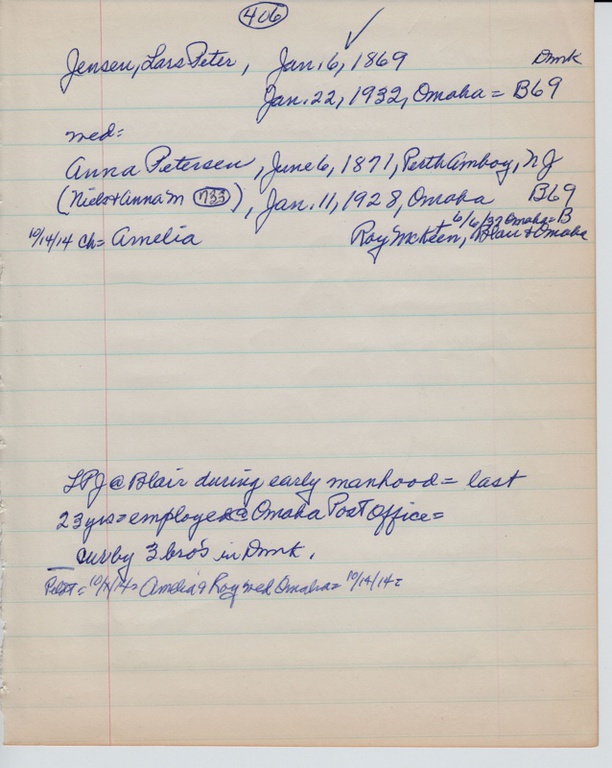 406
Jensen, Lars Peter, Jan. 6, 1869 Dmk
Jan. 22, 1932, Omaha = B69
wed=
Anna Petersen, June 6, 1871, Perth Amboy, NJ
(Niels + Anna M 1733), Jan. 11, 1928, Omaha B69
+ 6/6/37 Omaha = B
10/14/14 ch= Amelia Roy McKeen, Blair & Omaha
LPJ @ Blair during early manhood = last
23 yrs = employed @ Omaha Post Office =
surby 3 bro's in Dmk.
= Amelia & Roy wed Omaha = 10/14/14 =